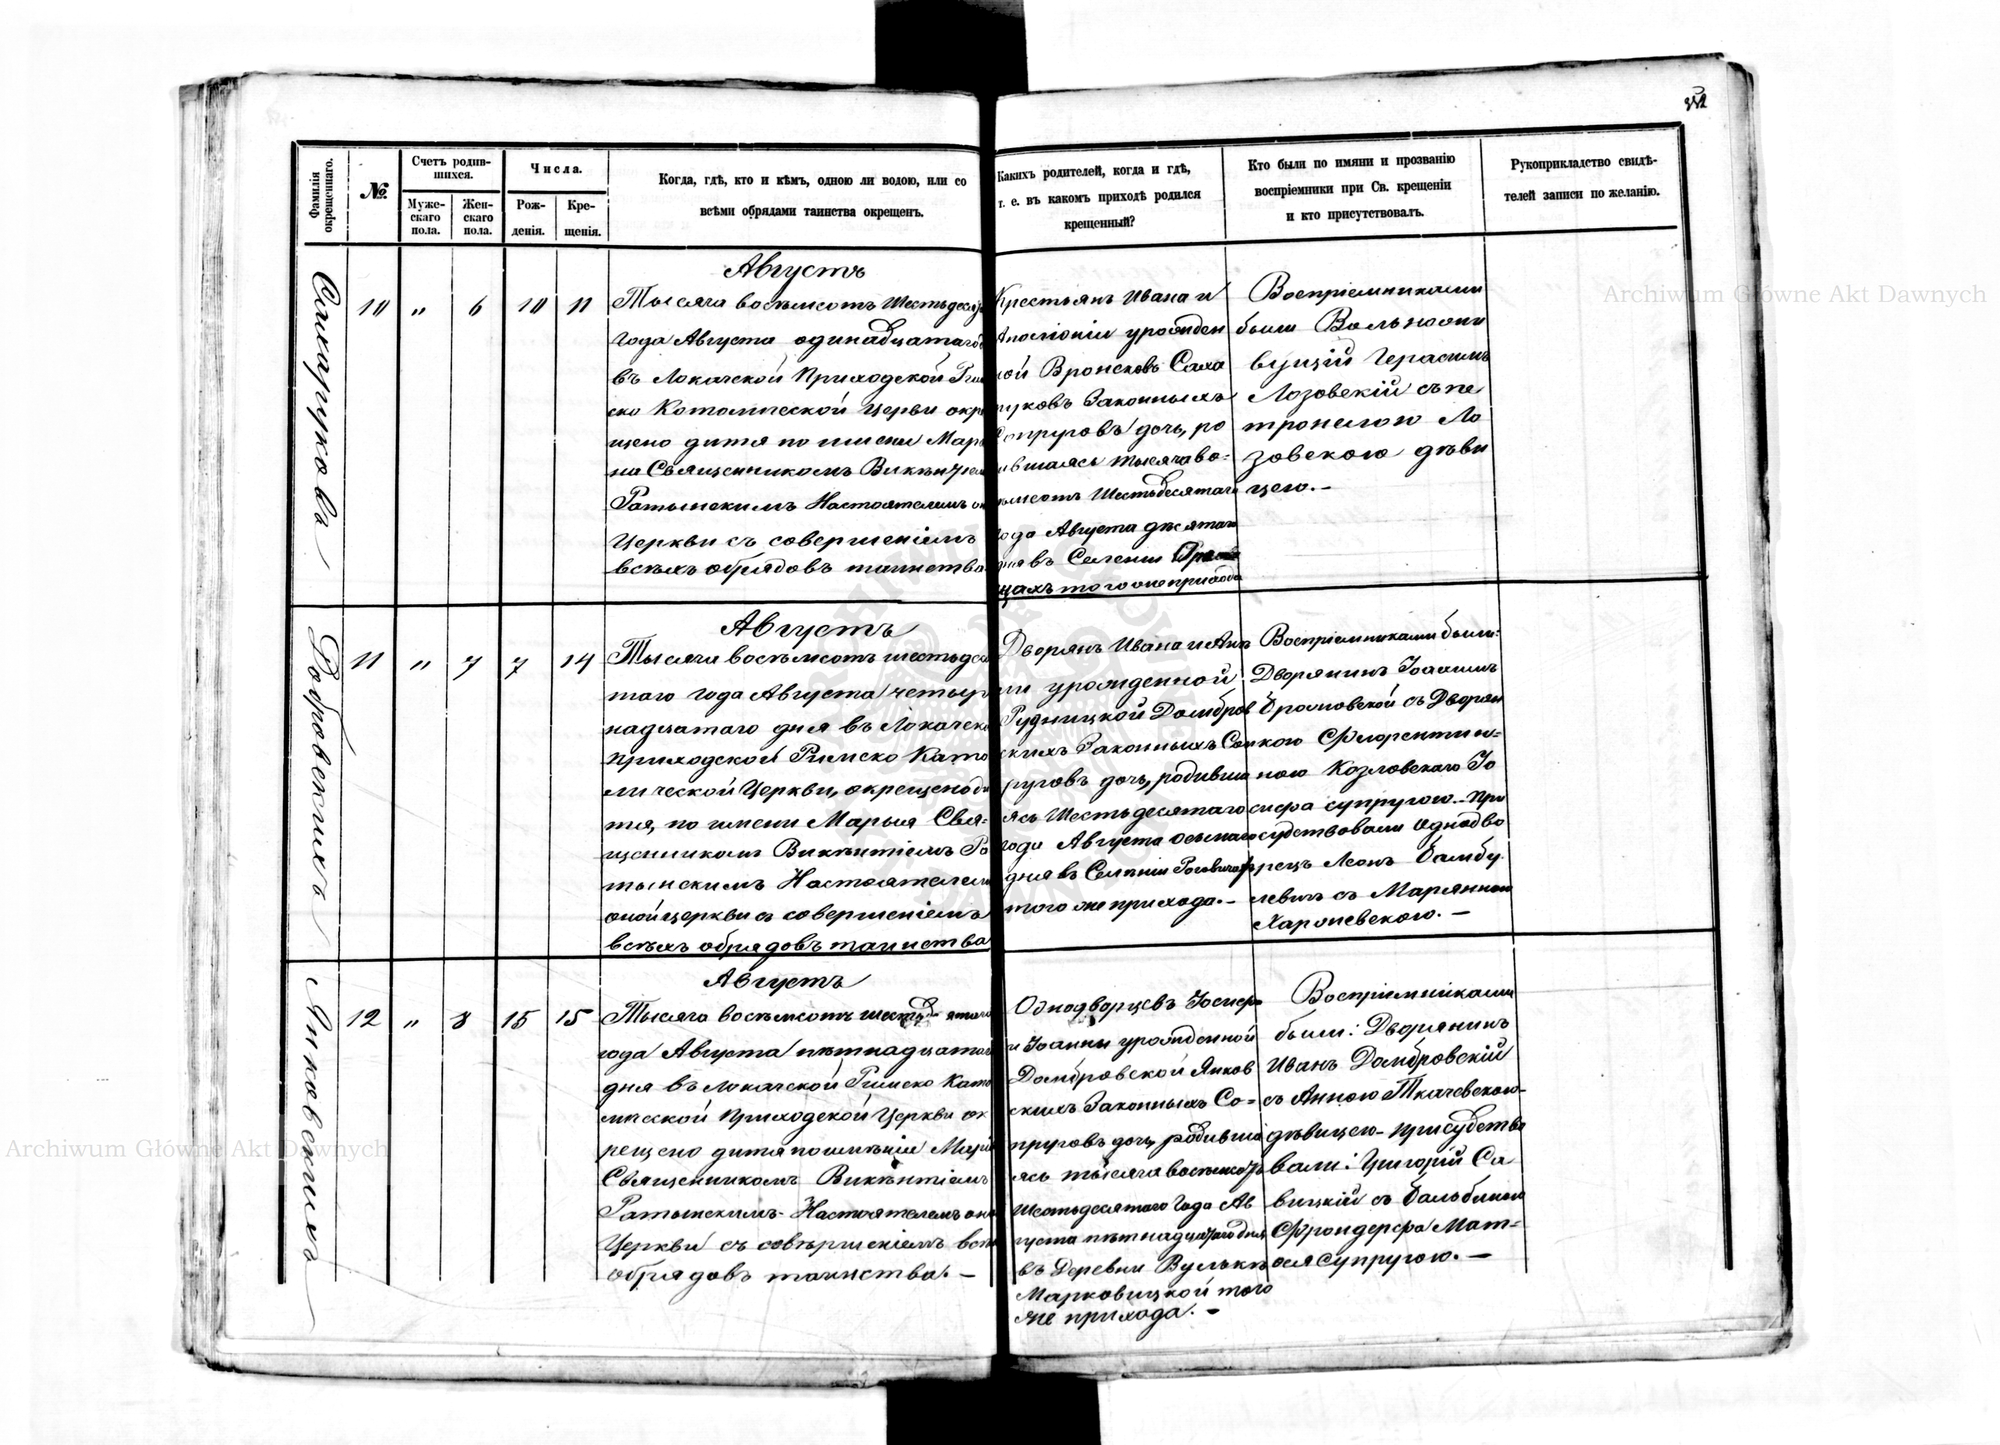 Archiwum Główne Akt Dawnych
Фамилія окрещеннаго.
№.
Счетъ родив-
шихся.
Муже-
скаго
пола.
Жен-
скаго
пола.
Числа.
Рож-
денія.
Кре-
щенія.
Когда, гдѣ, кто и кѣмъ, одною ли водою, или со
всѣми обрядами таинства окрещенъ.
Какихъ родителей, когда и гдѣ,
т. е. въ какомъ приходѣ родился
крещенный?
Кто были по имяни и прозванію
воспріемники при Св. крещеніи
и кто присутствовалъ.
Рукоприкладство свидѣ-
телей записи по желанію.
10 " 6 10 11
Августъ
Тысяча восемсотъ Шестьдеся
года Августа одинадцатаго
въ Локачской Приходской Рим
ско Католической Церви окре
щено дитя по имени Марь
на Священникомъ Викентіем
Ратынскимъ Настоятелемъ он
Церкви съ совершеніемъ
всѣхъ обрядовъ таинства
Крестьянъ Ивана и
Аполоніи урожден
ной Вронсковъ Саха
руковъ Законныхъ
Супруговъ дочь, ро
дившаясь тысяча во=
семсотъ Шестьдесятаго
года Августа десятаго
дня въ Селении
цахъ того же прихода
Воспріемниками
были Вольножи
вущій Герасимъ
Лозовскій съ Пе
тронелою Ло
зовскою дѣви
цею.-
Домбровскихъ
11 " 7 7 14
Августъ
Тысяча восемсотъ шестьдеся
таго года Августа четыр
надцатаго дня въ Локачско
Приходской Римско Като
лической Церкви, окрещено ди
тя, по имени Марья Свя=
щенникомъ Викентіемъ Ра
тынскимъ Настоятелем
оной церкви съ совершеніемъ
всѣхъ обрядовъ таинства
Дворянъ Ивана и Анъ
ны урожденной
Рудницкой Домбров
скихъ Законныхъ Соп
руговъ дочь, родивша
ясь Шестьдесятаго
года Августа осьмаго
дня въ Селеніи
того же прихода.-
Воспріемниками были:
Дворянинъ Іоахимъ
съ Дворян
кою Флорентин=
ною Козловскаго Іо
сифа супругою.- При
судствовали Однодво
рецъ Леонъ
левичъ съ Марянною
Хароневскою.-
Янковскихъ
12 " 8 15 15
Августъ
Тысяча восемсотъ шестьдесятаго
года Августа пятнадцатаго
дня въ Локачской Римско Като
лической Приходской Церкви ок
рещено дитя по имѣніи Марі
Священникомъ Викентіемъ
Ратынскимъ- Настоятелемъ оно
Церкви съ совершеніемъ всѣх
обрядовъ таинства.-
Однодворцевъ Іосифа
и Іоанны урожденной
Домбровской Янков
скихъ Законныхъ Со=
пруговъ дочь, родивша
ясь тысяча восемсотъ
Шестьдесятаго года Ав
густа пятнадцатаго дня
въ Деревни Вулькѣ
Марковицкой того
же прихода.-
Воспріемниками
были: Дворянинъ
Иванъ Домбровскій
съ Анною Ткачевскою-
дѣвицею- присудство
вали: Григорій Са
вицкій съ
Матѳ=
ея Супругою.-
Archiwum Główne Akt Dawnych